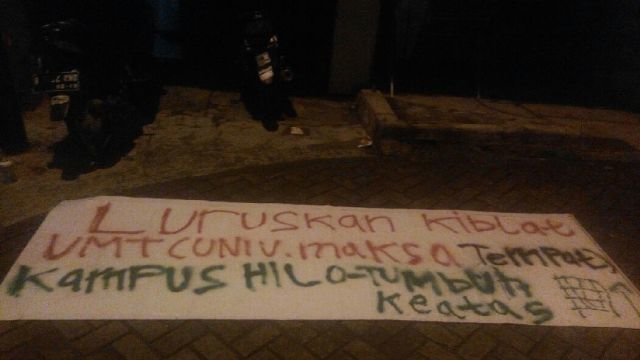 Luruskan Kiblat
UMT (UNIV. maksa Tempat)
Kampus HILO-TUMBUH
Keatas